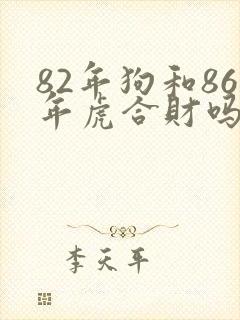 82年狗和86
年虎合財吗
李天平